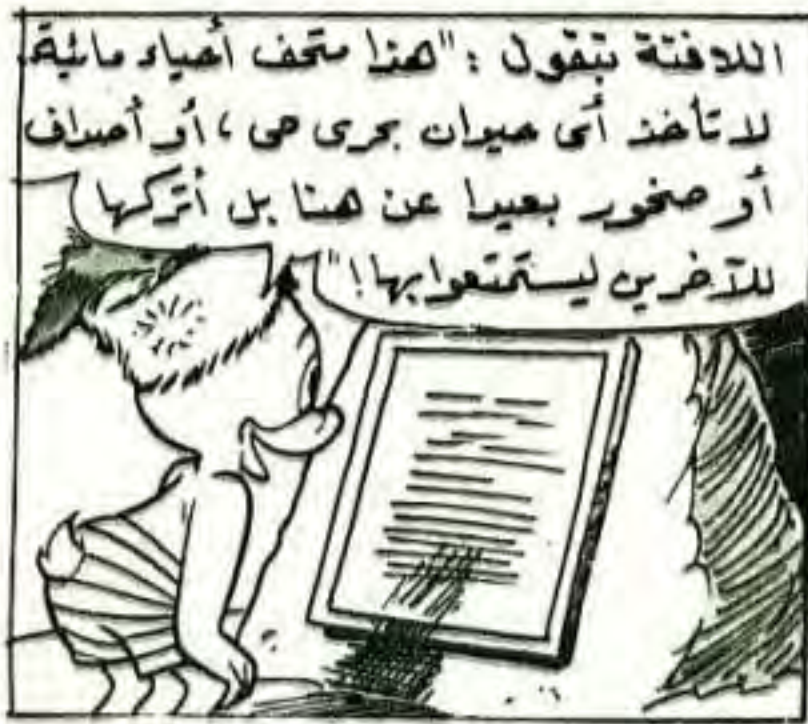 اللافتة تتقول : "هذا متحف أحياء مائية.
لا تأخذ أى حيوان بحرى حى ، أو أصداف
أو صخور بعيدا عن هنا بل أتركها
للآخرين ليستمتعوا بها ! "